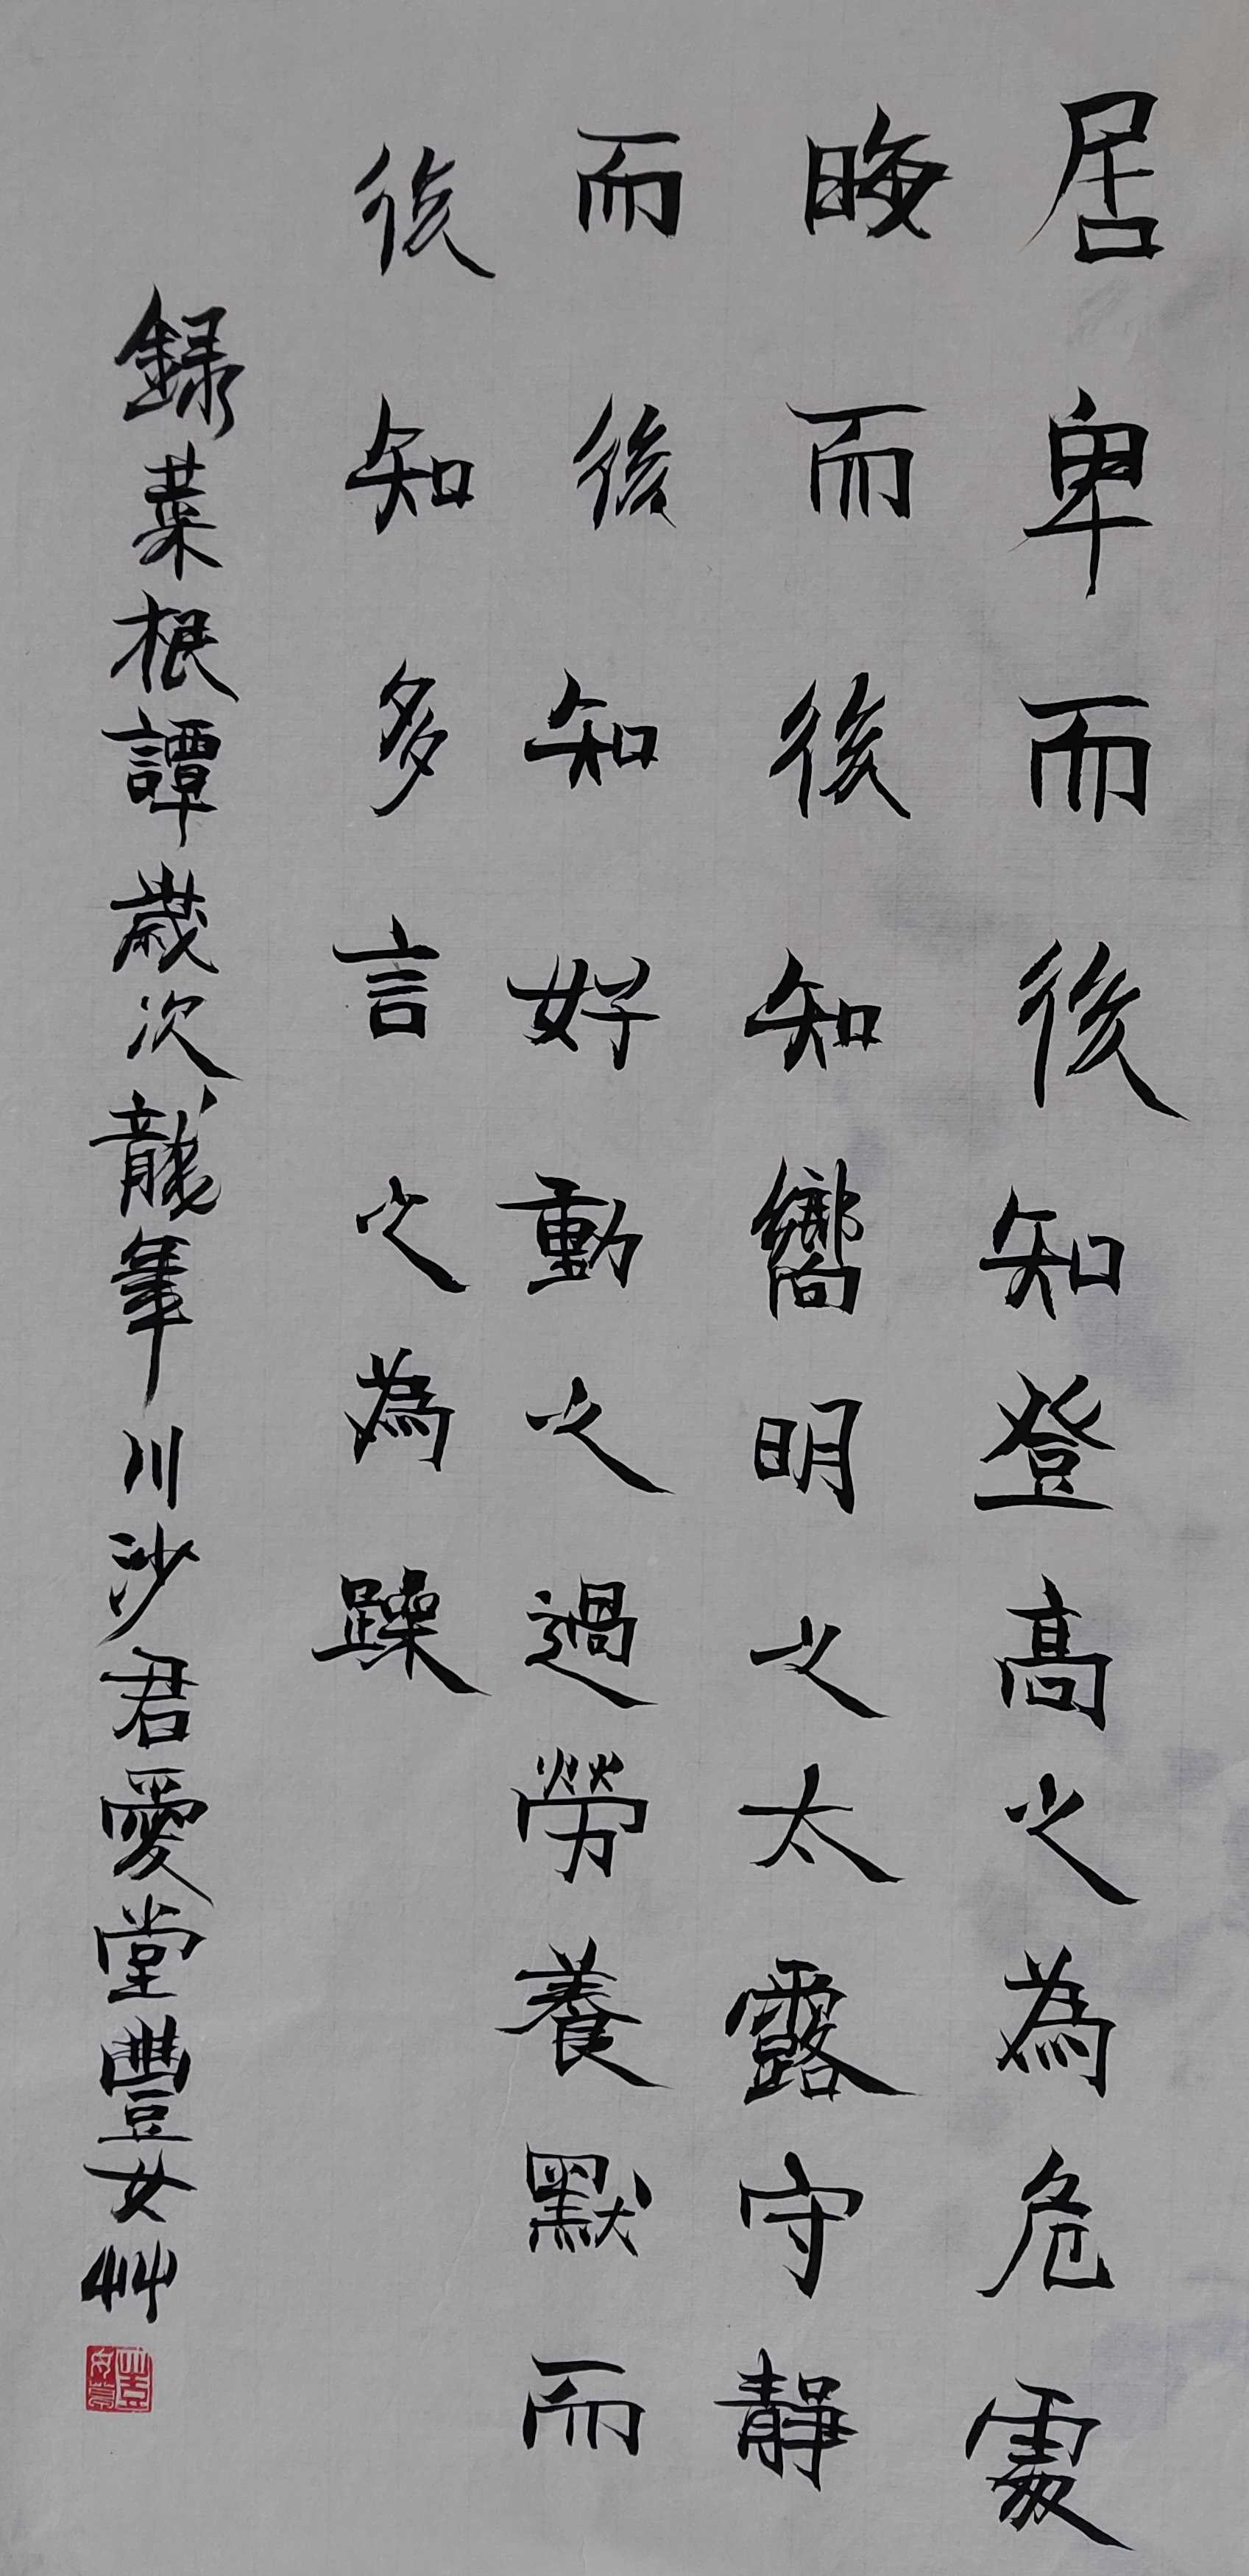 居卑而後知登高之為危處
晦而後知嚮明之太露守靜
而後知好動之過勞養默而
後知多言之為躁
録菜根譚歲次龍年川沙君愛堂豐女艸